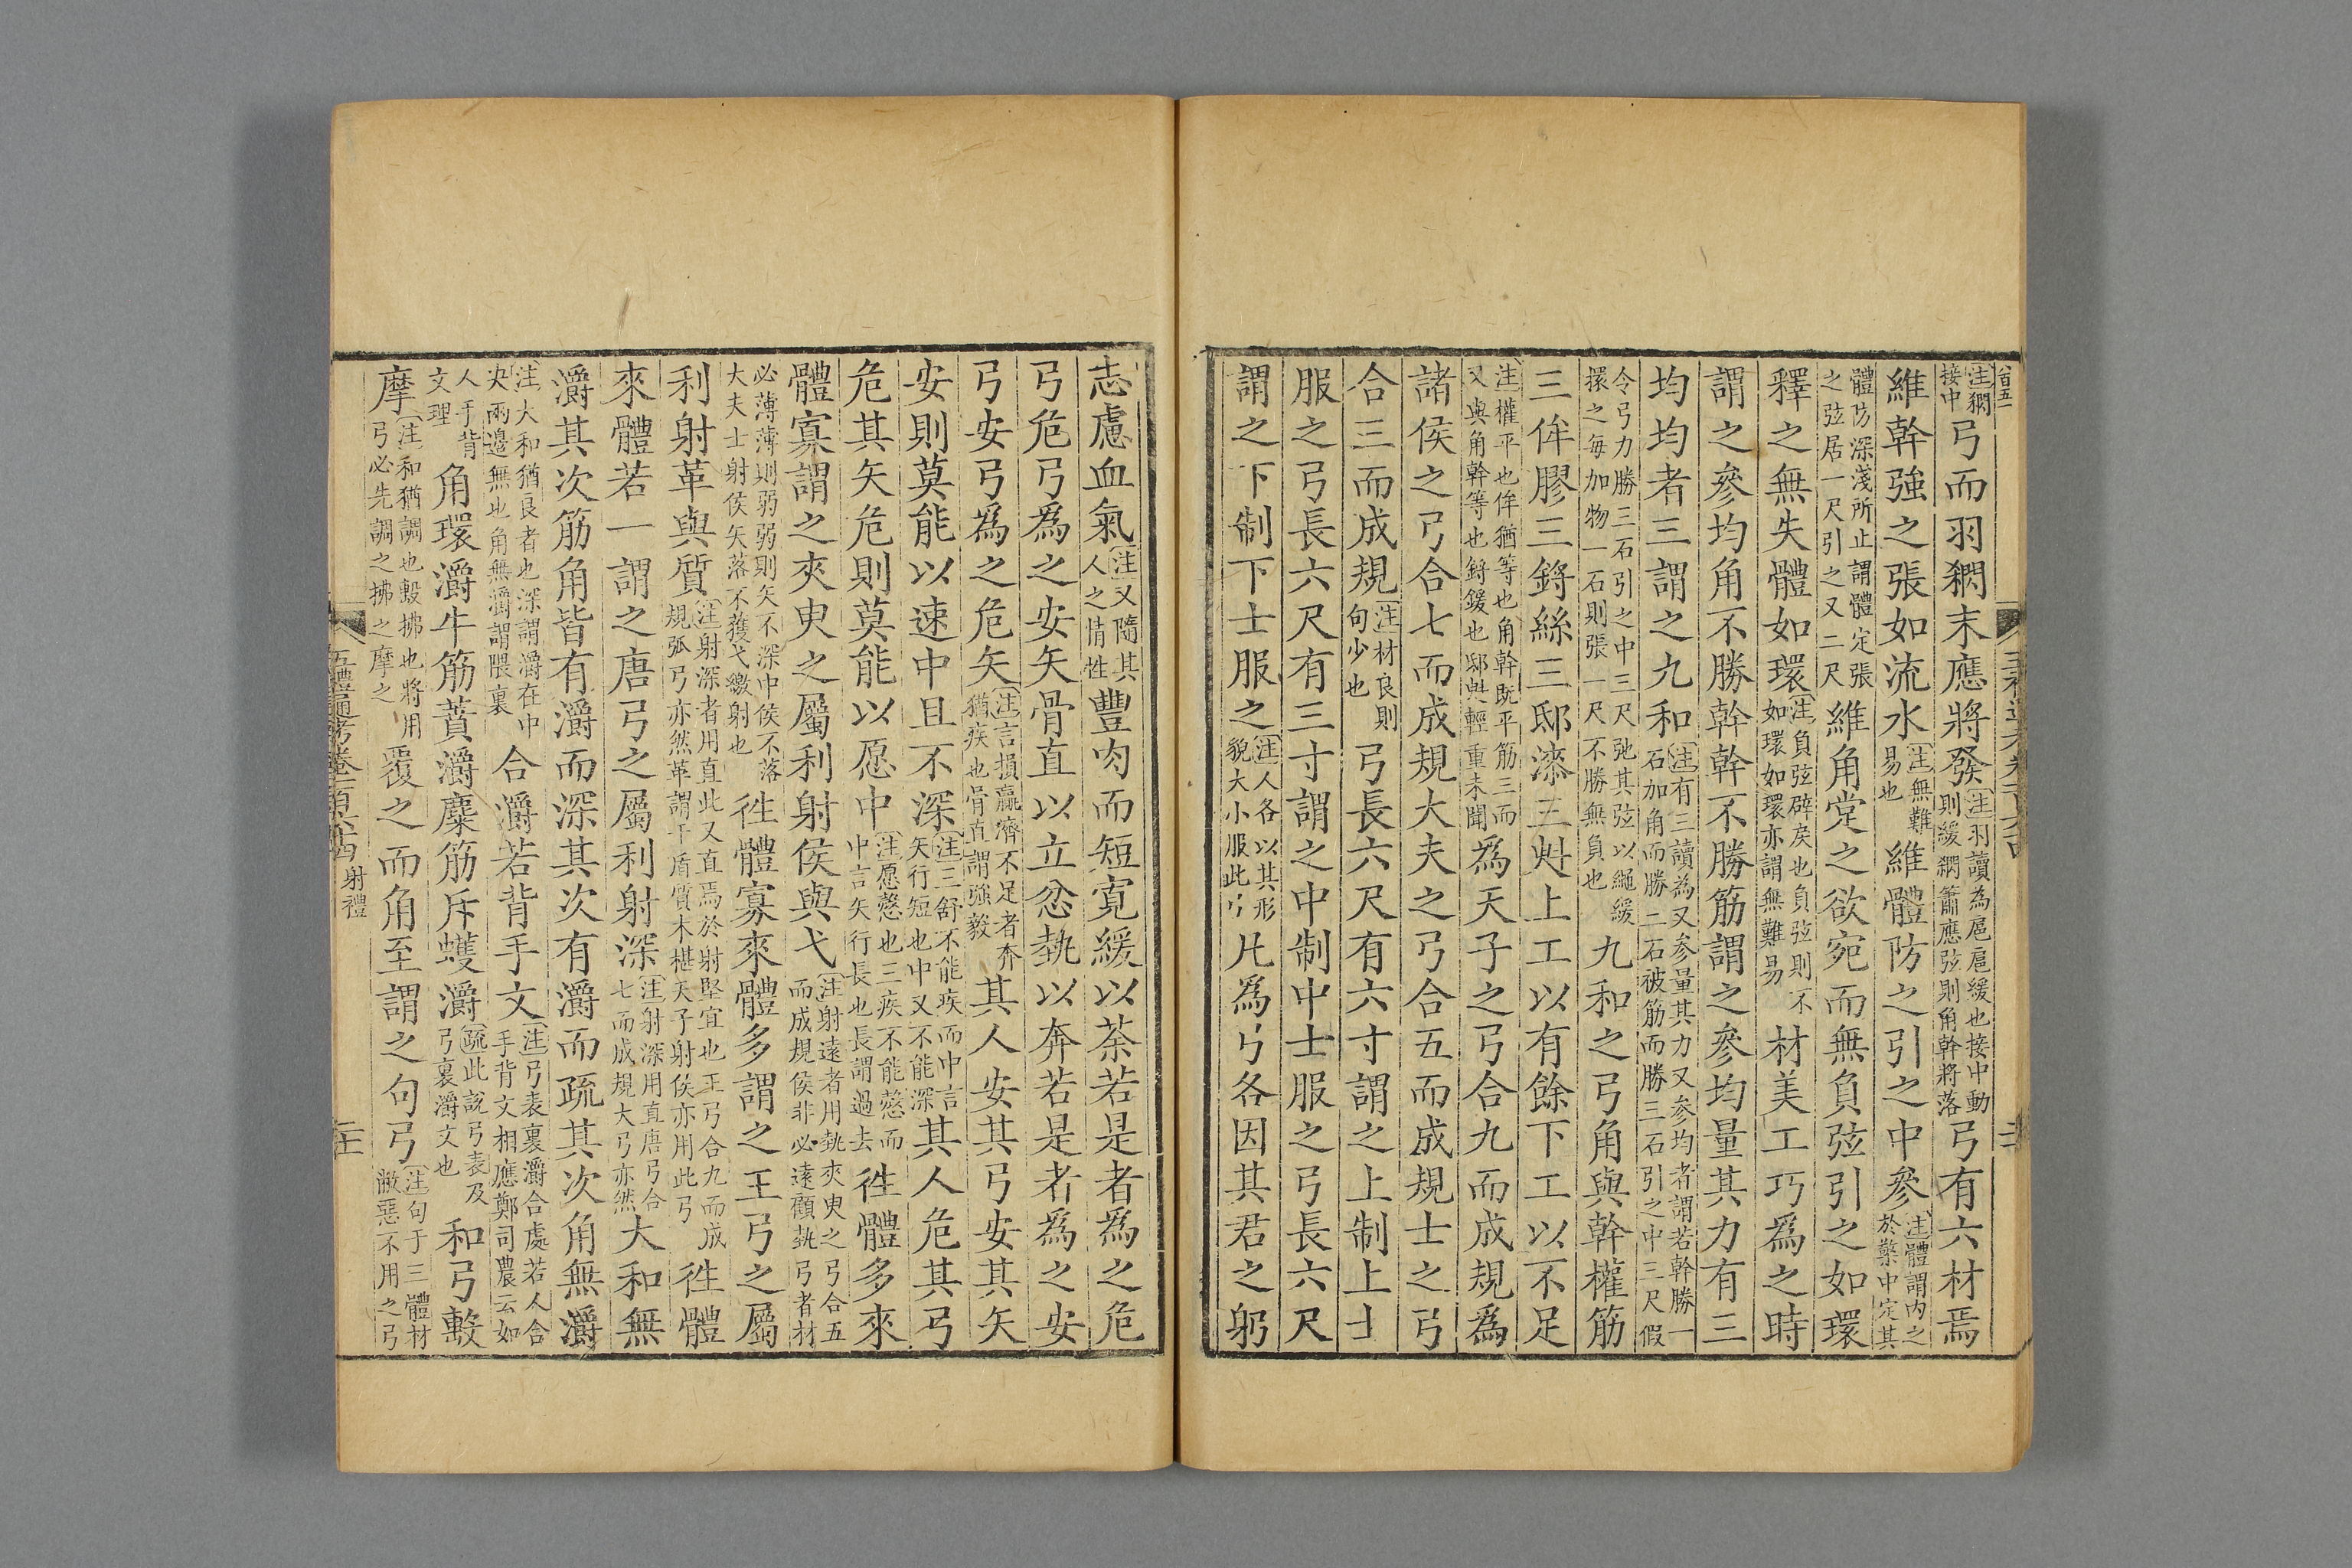 注㭈接中弓而羽㭈末應將發注羽讀為扈扈緩也接中動則緩㭈簫應弦則角幹將落弓有六材焉
維幹強之張如流水注無難易也維體防之引之中參注體謂內之於檠中定其
體防深淺所止謂體定張之弦居一尺引之又二尺維角㼹之欲宛而無負弦引之如環
釋之無失體如環注負弦辟戾也負弦則不如環如環亦謂無難易材美工巧爲之時
謂之參均角不勝幹幹不勝筋謂之參均量其力有三
均均者三謂之九和注有三讀為又參量其力又參均者謂若幹勝一石加角而勝二石被筋而勝三石引之中三尺假
令弓力勝三石引之中三尺弛其弦以繩緩擐之每加物一石則張一尺不勝無負也九和之弓角與幹權筋
三侔膠三鋝絲三邸漆三㪺上工以有餘下工以不足
注權平也侔猶等也角幹既平筋三而又與角幹等也鋝鍰也邸㪺輕重未聞為天子之弓合九而成規爲
諸侯之弓合七而成規大夫之弓合五而成規士之弓
合三而成規注材良則句少也弓長六尺有六寸謂之上制上士
服之弓長六尺有三寸謂之中制中士服之弓長六尺
謂之下制下士服之注人各以其形貌大小服此弓凡爲弓各因其君之躬
志慮血氣注又隨其人之情性豐肉而短寛緩以荼若是者爲之危
弓危弓爲之安矢骨直以立忿埶以奔若是者爲之安
弓安弓爲之危矢注言損贏濟不足者奔猶疾也骨直謂強毅其人安其弓安其矢
安則莫能以速中且不深注三舒不能疾而中言矢行短也中又不能深其人危其弓
危其矢危則莫能以愿中注愿慤也三疾不能慤而中言矢行長也長謂過去徃體多來
體寡謂之夾臾之屬利射侯與弋注射遠者用埶夾臾之弓合五而成規侯非必遠顧埶弓者材
必薄薄則弱弱則矢不深中侯不落大夫士射侯矢落不獲弋繳射也徃體寡來體多謂之王弓之屬
利射革與質注射深者用直此又直焉於射堅宜也王弓合九而成規弧弓亦然革謂干盾質木椹天子射侯亦用此弓徃體
來體若一謂之唐弓之屬利射深注射深用直唐弓合七而成規大弓亦然大和無
灂其次筋角皆有灂而深其次有灂而疏其次角無灂
注大和猶良者也深謂灂在中央兩邊無也角無灂謂隈裏合灂若背手文注弓表裏灂合處若人合手背文相應鄭司農云如
人手背文理角環灂牛筋蕡灂麋筋斥蠖灂疏此說弓表及弓裏灂文也和弓毄
摩注和猶調也毄拂也將用弓必先調之拂之摩之覆之而角至謂之句弓注句于三體材敝惡不用之弓
五禮通考卷一百六十四 射禮